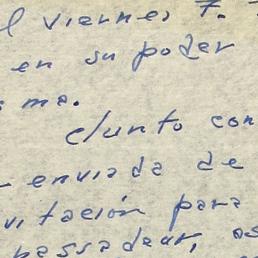 el viernes 7.
en su poder
ma.
Junto con
enviada de
vitación para
bassadeur, as